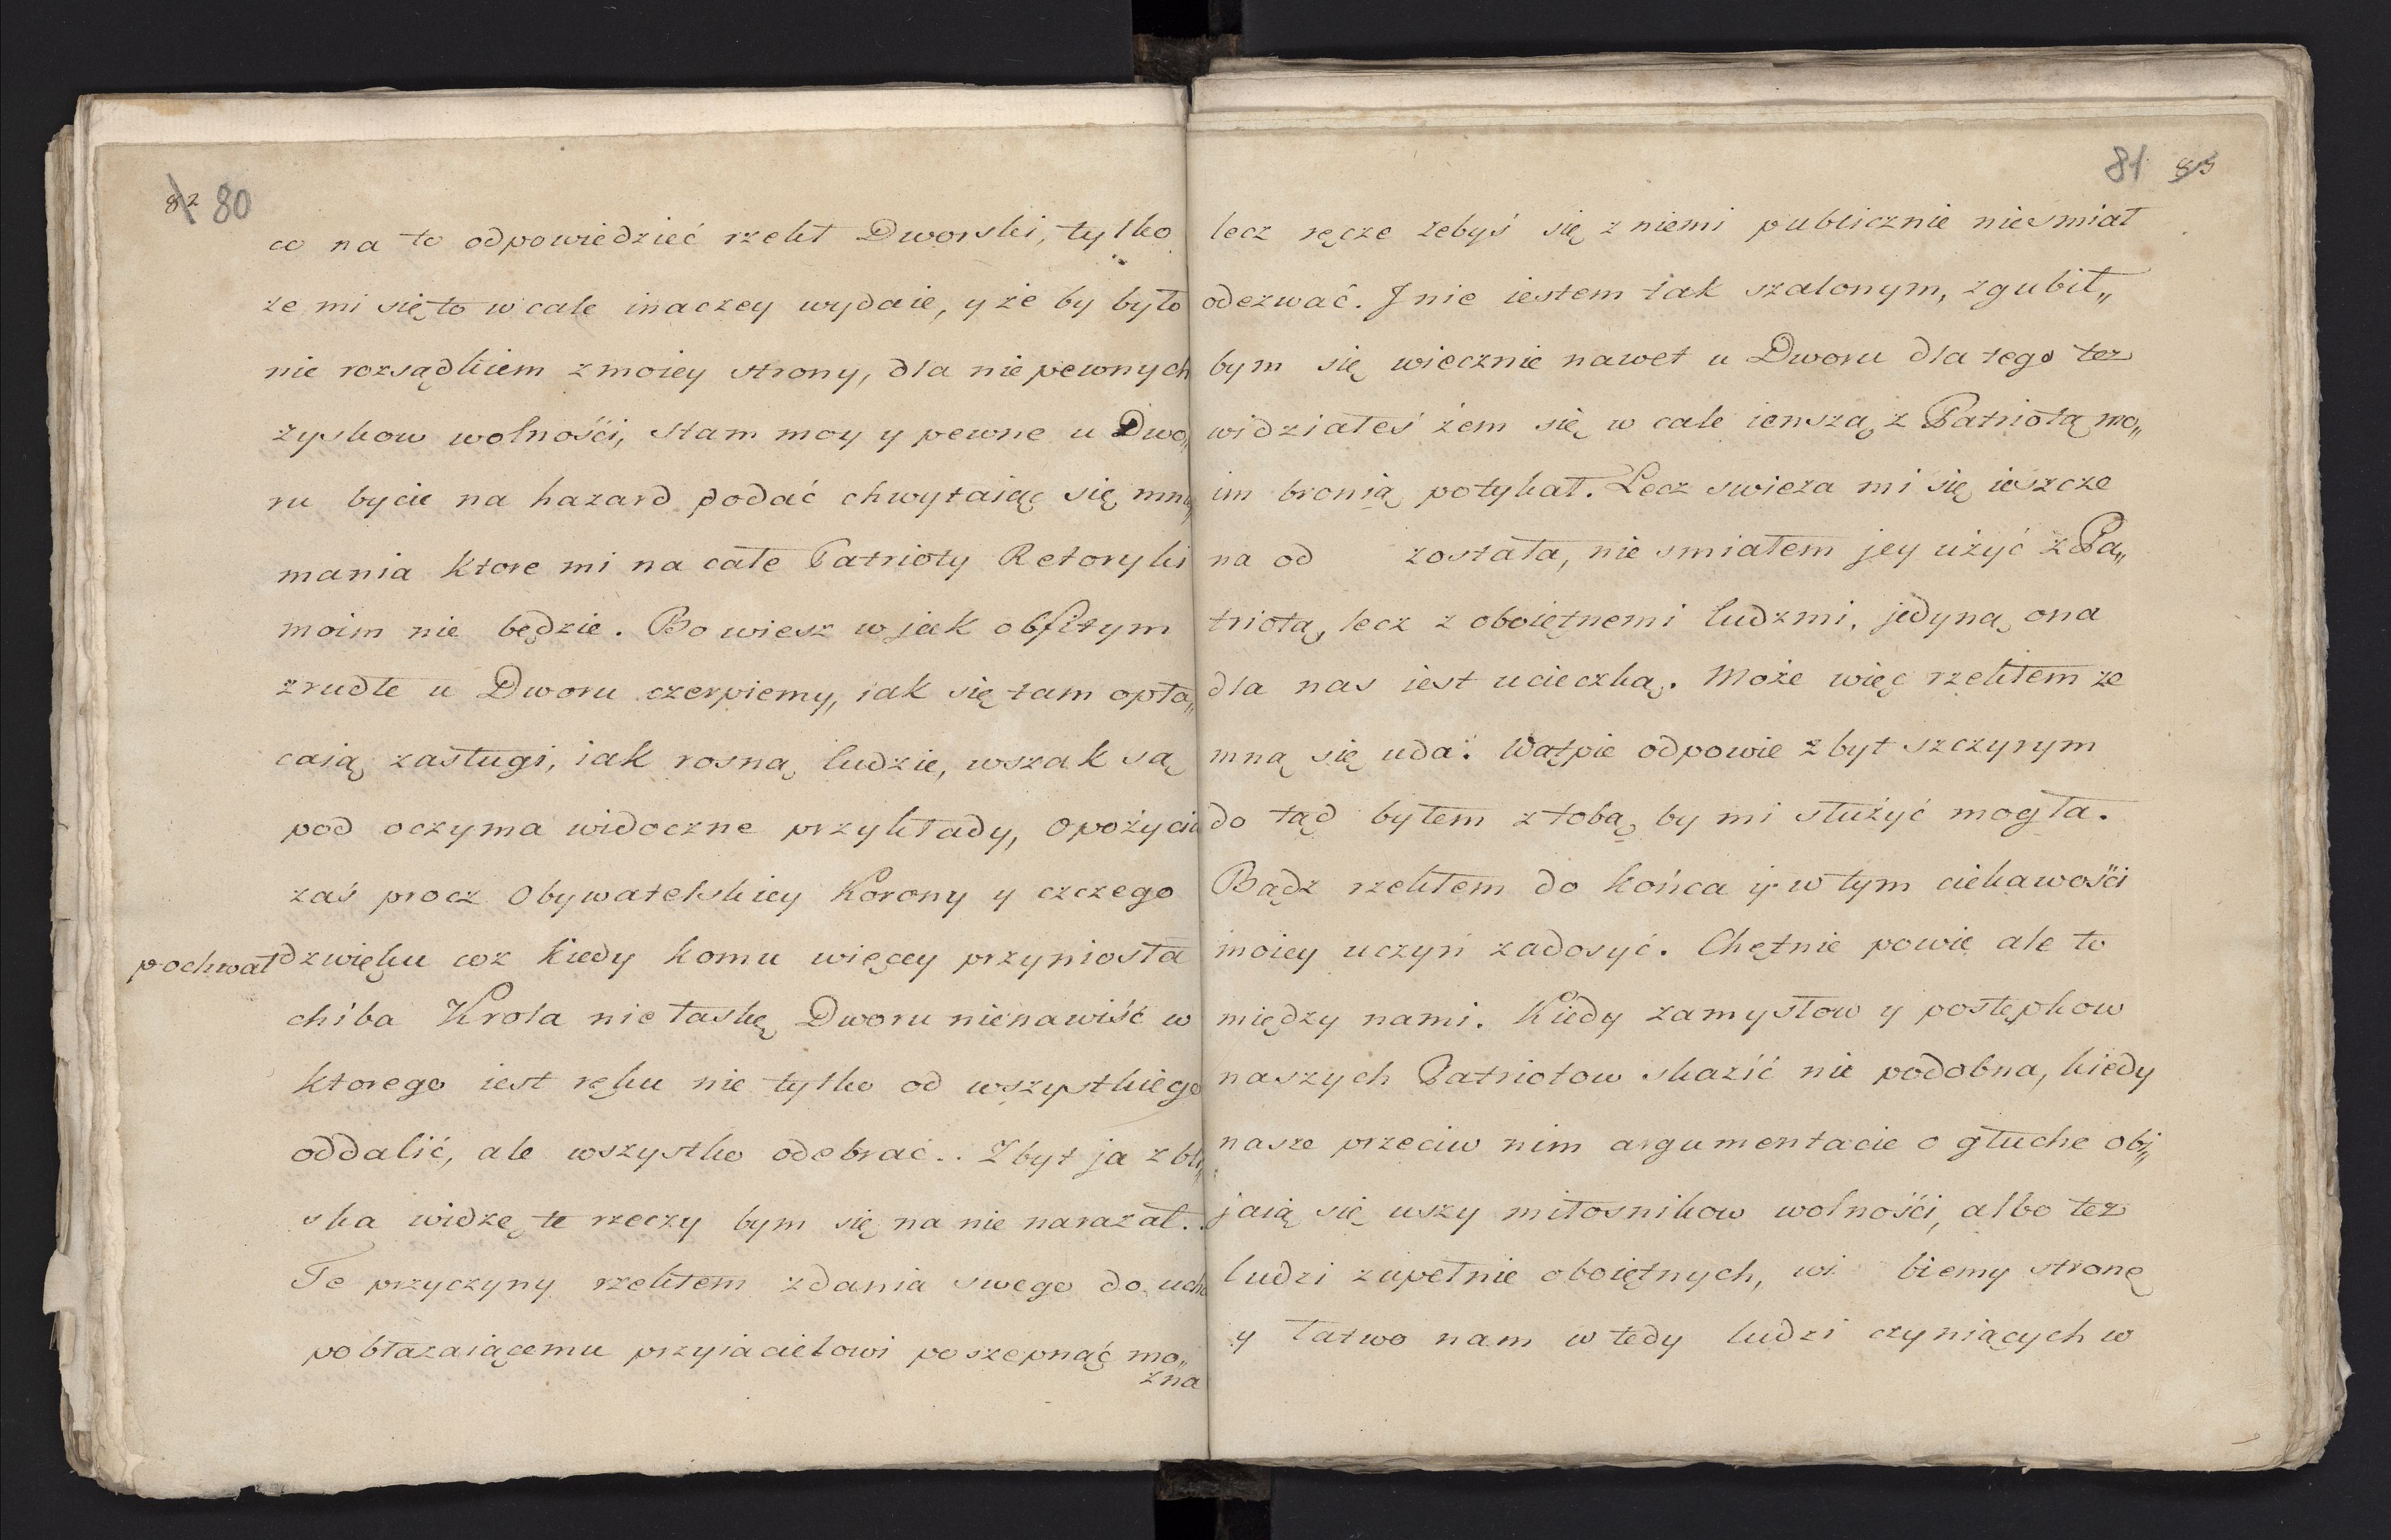 82 80
co na to odpowiedzieć rzekł Dworski, tylko
ze mi się to w cale inaczey wydaie, y że by było
nie rozsądkiem z moiey strony, dla nie pewnych
zyskow wolnośći, stam moy y pewne u Dwo„
ru bycie na hazard podać chwytaiąc się mnie„
mania ktore mi na całe Patrioty Retoryki
moim nie będzie. Bo wiesz w jak obfitym
zrudle u Dworu czerpiemy, iak się tam opła„
caią zasługi, iak rosną ludzie, wszak są
pod oczyma widoczne przykłady, Opożycia
zaś procz Obywatelskiey Korony y czczego
pochwał dzwięku coz kiedy komu więcey przyniosła
chiba Krola nie łaskę Dworu nienawiść w
ktorego iest ręku nie tylko od wszystkiego
oddalić, ale wszystko odebrać.. Zbyt ja z bli„
ska widzę te rzeczy bym się na nie narazał.
Te przyczyny rzekłem zdania swego do ucha
pobłazaiącemu przyiacielowi poszepnąć mo„
zna
81 83
lecz ręcze zebyś się z niemi publicznie niesmiał
odezwać. J nie iestem tak szalonym, zgubił„
bym się wiecznie nawet u Dworu dla tego tez
widziałeś żem się w cale ienszą z Patriotą mo„
im bronią potykał. Lecz swieza mi się ieszcze
na od została, nie smiałem jey użyć z Pa„
triotą, lecz z oboiętnemi ludzmi, jedyną ona
dla nas iest ucieczką. Może więc rzekłem ze
mną się uda. Wątpie odpowie zbyt szczyrym
do tąd byłem z tobą by mi służyć mogła.
Bądz rzekłem do końca y w tym ciekawośći
moiey uczyń zadosyć. Chętnie powie ale to
między nami. Kiedy zamysłow y postępkow
naszych Patriotow skazić nie podobna, kiedy
nasze przeciw nim argumentacie o głuche obi„
jaią się uszy miłosnikow wolnośći, albo tez
ludzi zupełnie oboiętnych, biemy stronę
y łatwo nam w tedy ludzi czyniących w